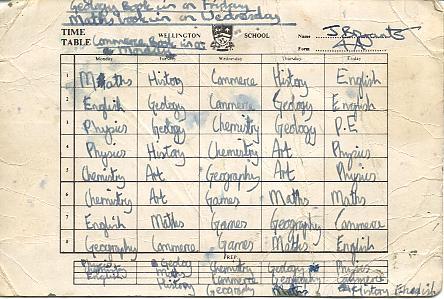 Geology Book in on Friday
Maths book in on Wednesday
TIME WELLINGTON SCHOOL Name J Bryant
TABLE Commerce Book in on Monday Form
Monday Tuesday Wednesday Thursday Friday
1 Maths History Commerce History English
2 English Geology Commerce Geology English
3 Physics Geology Chemistry Geology P.E
4 Physics History Chemistry Art Physics
5 Chemistry Art Geography Art Physics
6 Chemistry Art Games Maths Maths
7 English Maths Games Geography Commerce
8 Geography Commerce Games Maths English
PREP.
Physics Geology Chemistry Geology Physics
Chemistry Maths Commerce Geography Commerce
English History Geography Maths History English